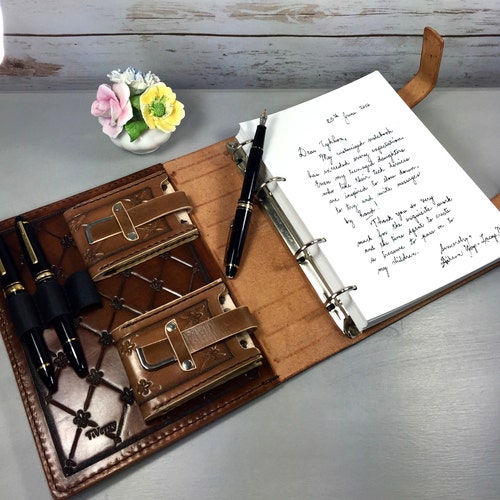 20th June 2016
My customized notebook
has exceeded every expectations.
Even my teenaged daughters
who like their tech devices
are inspired to slow down
to try and write messages
by hand.
Thank you so very
much for the exquisite work
and the time spent to create
a treasure to pass on to
my children.
Sincerely,